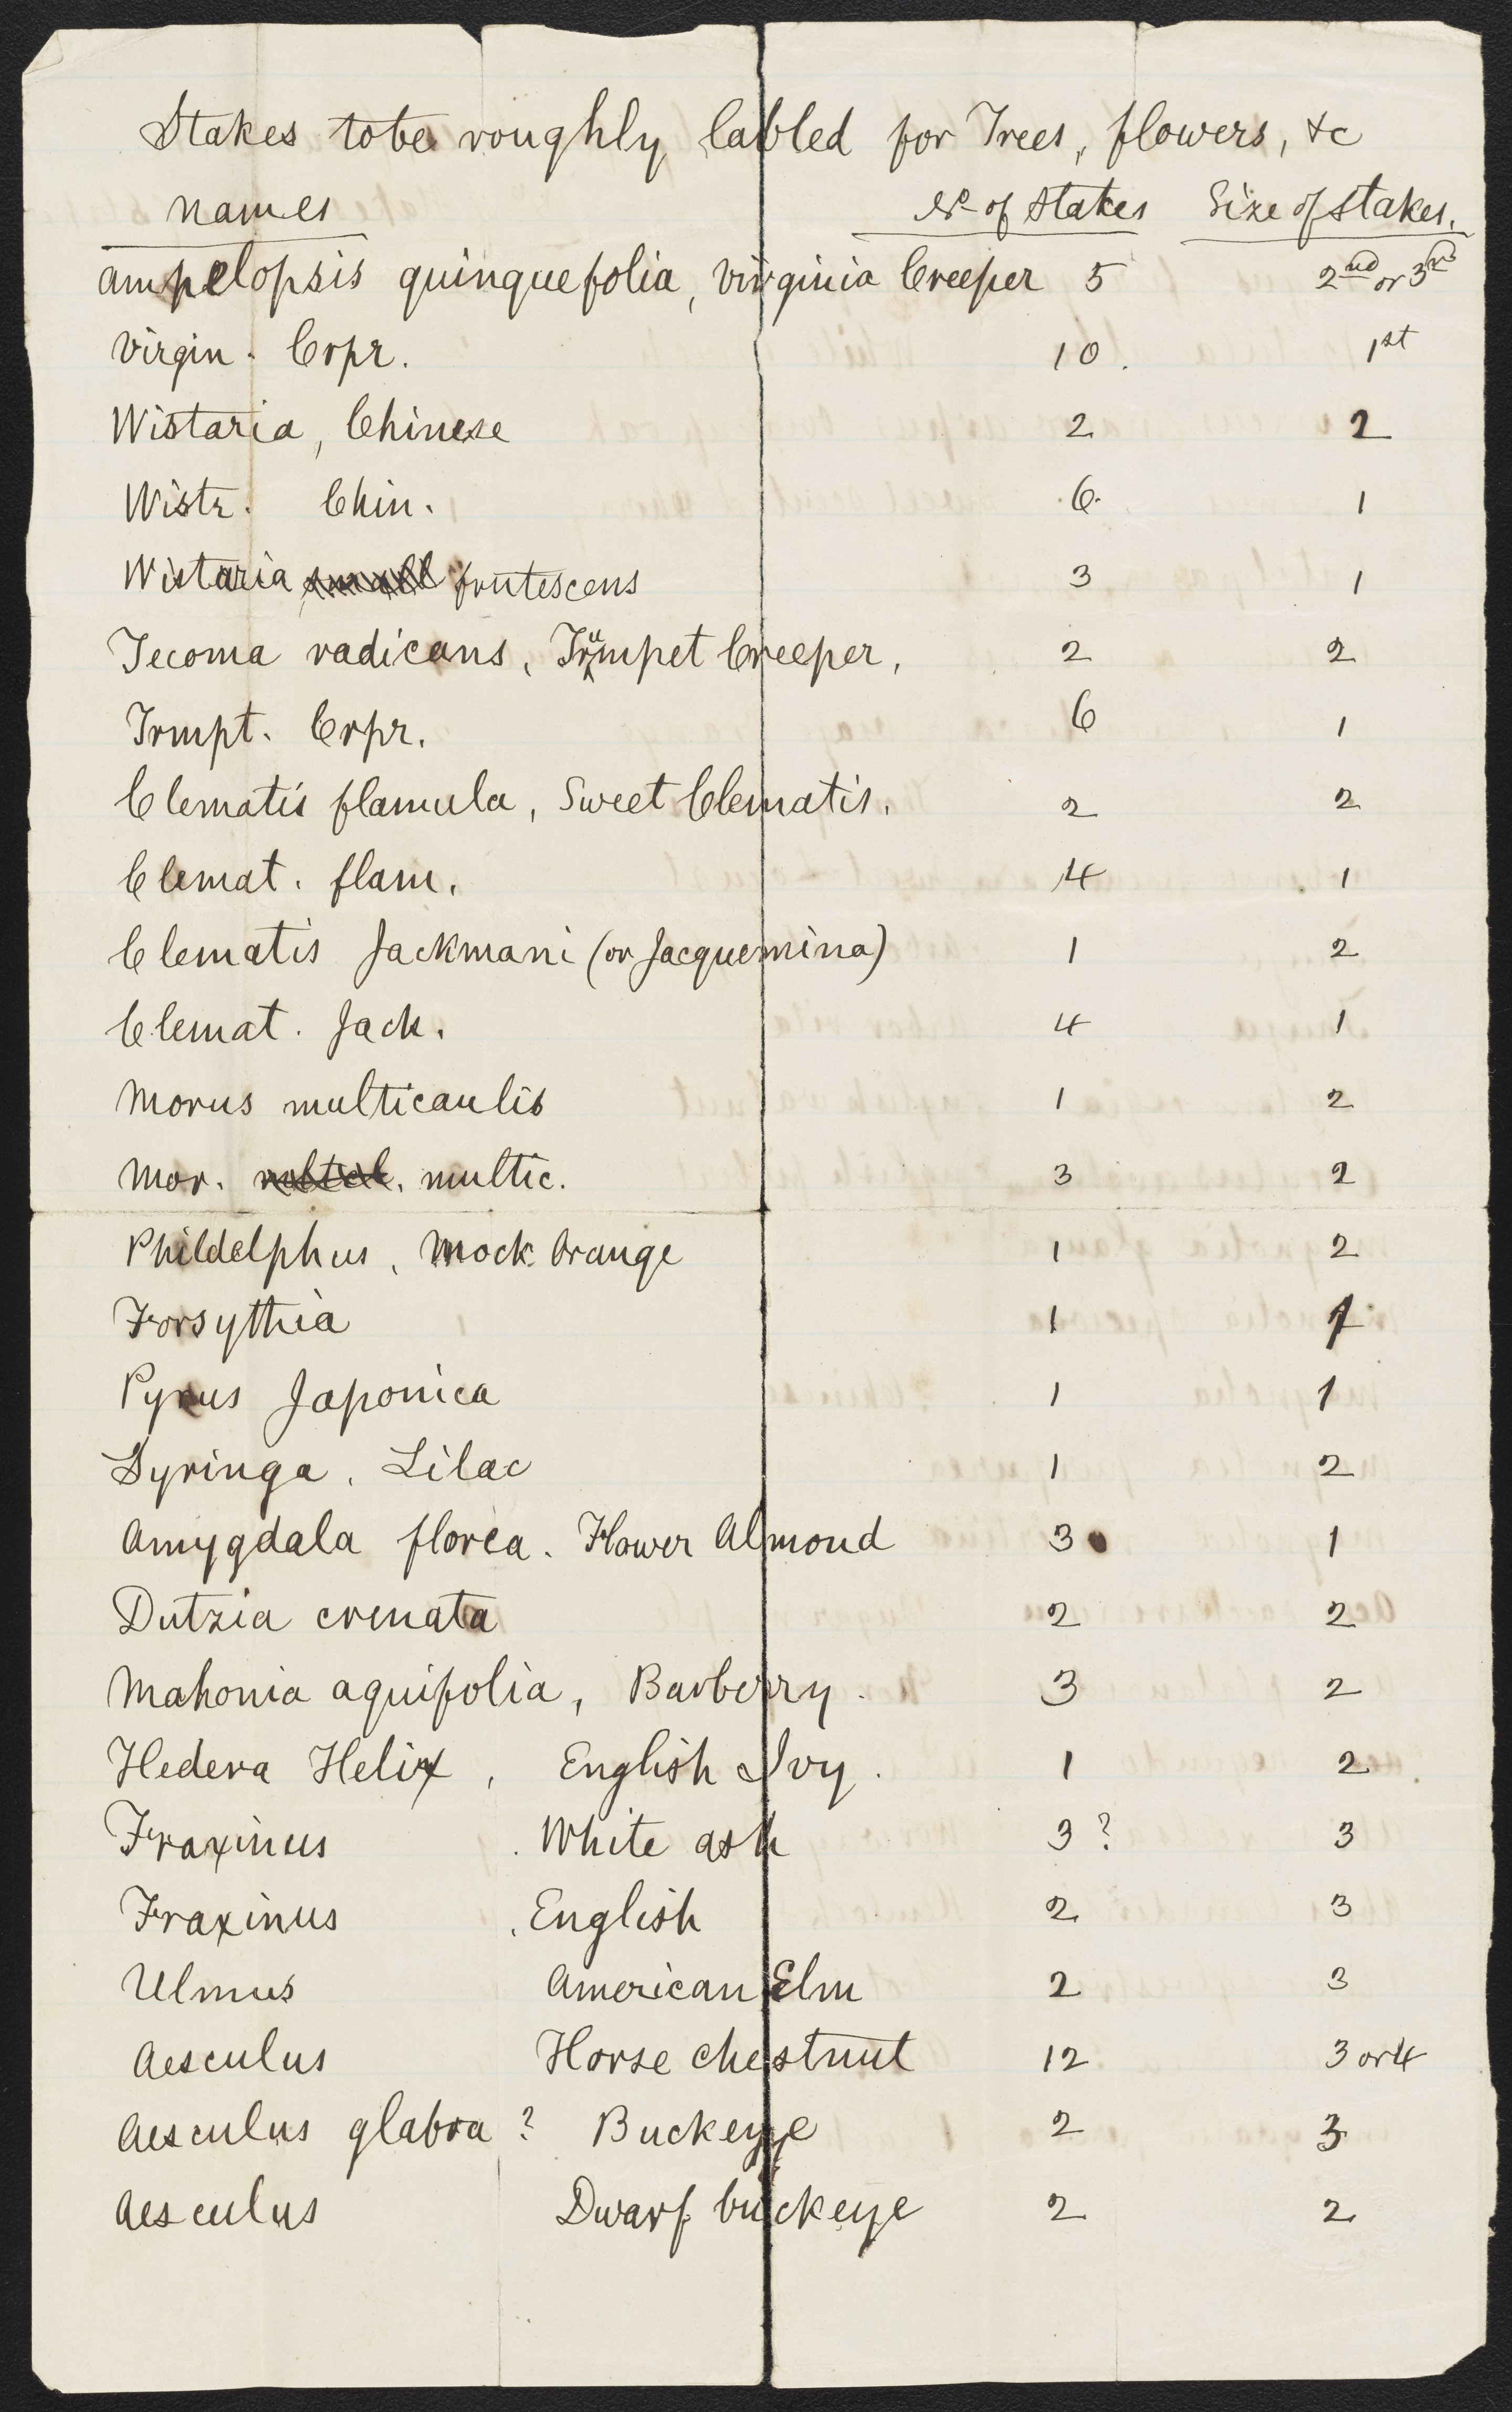 Stakes to be roughly labled for Trees, flowers, &c
names No. of Stakes Size of stakes.
ampelopsis quinquefolia, virginia Creeper 5 2nd or 3rd
Virgin. Crpr. 10. 1st
Wistaria, Chinese 2 2
Wistr. Chin. 6. 1
Wistaria small frutescens 3 1
Tecoma radicans, Trumpet Creeper, 2 2
Trmpt. Crpr. 6 1
Clematis flamula, Sweet Clematis. 2 2
Clemat. flam. 4 1
Clematis Jackmani (or Jacquemina) 1 2
Clemat. Jack. 4 1
Morus multicaulis 1 2
Mor. multic. 3 2
Phildelphus, Mock Orange 1 2
Forsythia 1 1
Pyrus Japonica 1 1
Syringa, Lilac 1 2
Amygdala florea. Flower Almond 3 1
Dutzia crenata 2 2
Mahonia aquifolia, Barberry. 3 2
Hedera Helix, English Ivy. 1 2
Fraxinus White ash 3? 3
Fraxinus English 2 3
Ulmus American Elm 2 3
Aesculus Horse chestnut 12 3 or 4
Aesculus glabra? Buckeye 2 3
Aesculus Dwarf buckeye 2 2